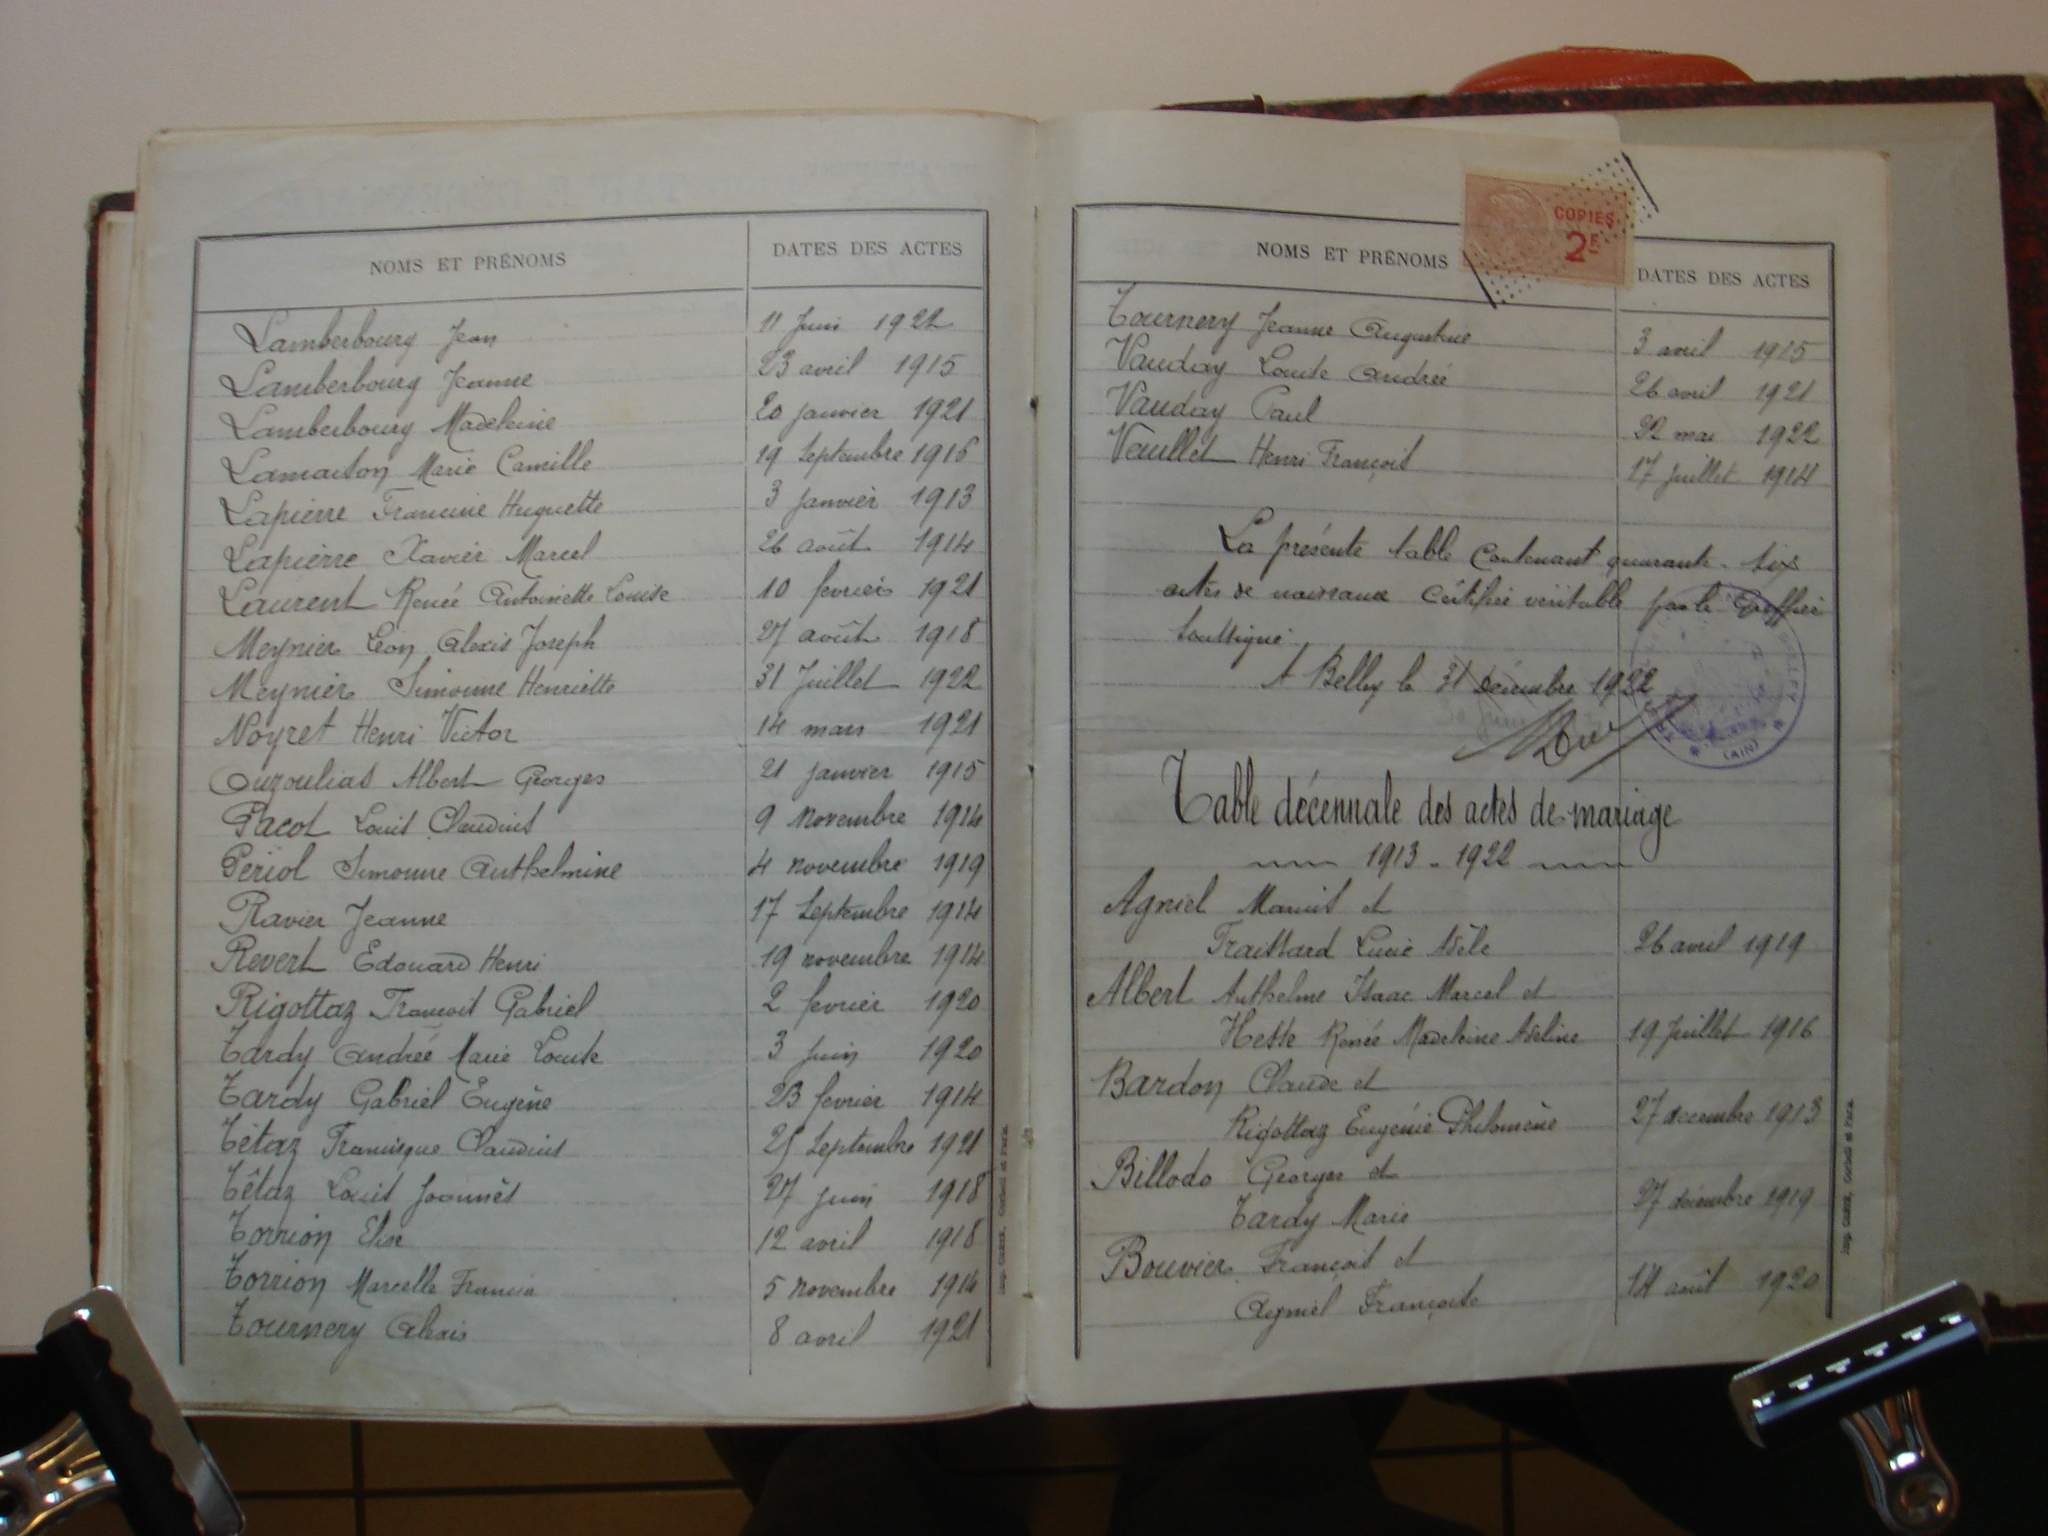 NOMS ET PRÉNOMS DATES DES ACTES
Lamberbourg Jean 11 Juin 1922
Lamberbourg Jeanne 23 avril 1915
Lamberbourg Madeleine 20 janvier 1921
Lamaison Marie Camille 19 Septembre 1916
Lapierre Francine Huguette 3 janvier 1913
Lapierre Xavier Marcel 26 août 1914
Laurent Renée Antoinette Louise 10 fevrier 1921
Meynier Léon Alexis Joseph 27 août 1918
Meynier Simonne Henriette 31 Juillet 1922
Noyret Henri Victor 14 mars 1921
Ouzoulias Albert Georges 21 janvier 1915
Pacot Louis Claudius 9 Novembre 1914
Périol Simonne Anthelmine 4 novembre 1919
Ravier Jeanne 17 Septembre 1914
Revert Edouard Henri 19 novembre 1914
Rigottaz François Gabriel 2 fevrier 1920
Tardy Andrée Marie Louise 3 Juin 1920
Tardy Gabriel Eugène 23 fevrier 1914
Têtaz Francisque Claudius 25 Septembre 1921
Têtaz Louis Joannès 27 juin 1918
Torrion Elise 12 avril 1918
Torrion Marcelle Francia 5 Novembre 1914
Tournery Alexis 8 avril 1921
NOMS ET PRÉNOMS DATES DES ACTES
COPIES
2F
Tournery Jeanne Augustine 3 avril 1915
Vauday Louise Andrée 26 avril 1921
Vauday Paul 22 mai 1922
Veuillet Henri François 17 juillet 1914
La présente table contenant quarante-six
actes de naissance certifié véritable par le Greffier
soussigné.
A Belley le 31 décembre 1922
(AIN)
Table décennale des actes de mariage
1913 - 1922
Agniel Marius et
Traissard Lucie Adèle 26 avril 1919
Albert Anthelme Isaac Marcel et
Hette Renée Madeleine Adeline 19 Juillet 1916
Bardon Claude et
Rigottaz Eugénie Philomène 27 decembre 1913
Billodo Georges et
Tardy Marie 27 décembre 1919
Bouvier François et
Agniel Françoise 14 août 1920